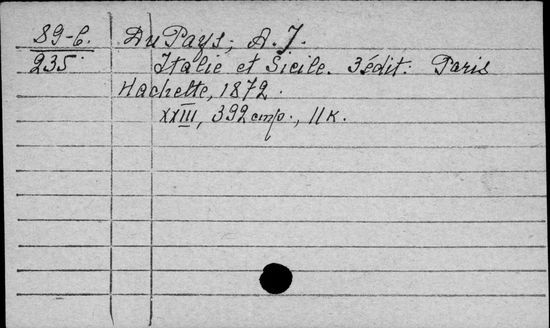 89-6. Du Pays, A. J.
235. Italie et Sicile. 3 édit. Paris
Hachette, 1872.
XXIII, 392 стр., 11 к.